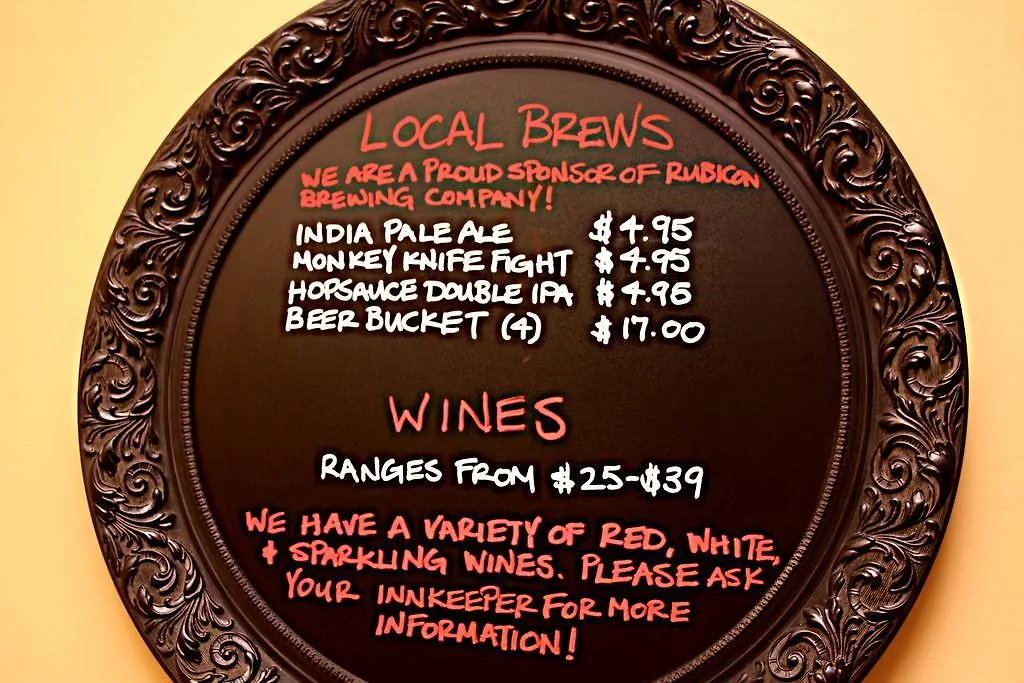 LOCAL BREWS
WE ARE A PROUD SPONSOR OF RUBICON
BREWING COMPANY!
INDIA PALE ALE $4.95
MONKEY KNIFE FIGHT $4.95
HOPSAUCE DOUBLE IPA $4.95
BEER BUCKET (4) $17.00
WINES
RANGES FROM $25-$39
WE HAVE A VARIETY OF RED, WHITE,
& SPARKLING WINES. PLEASE ASK
YOUR INNKEEPER FOR MORE
INFORMATION!